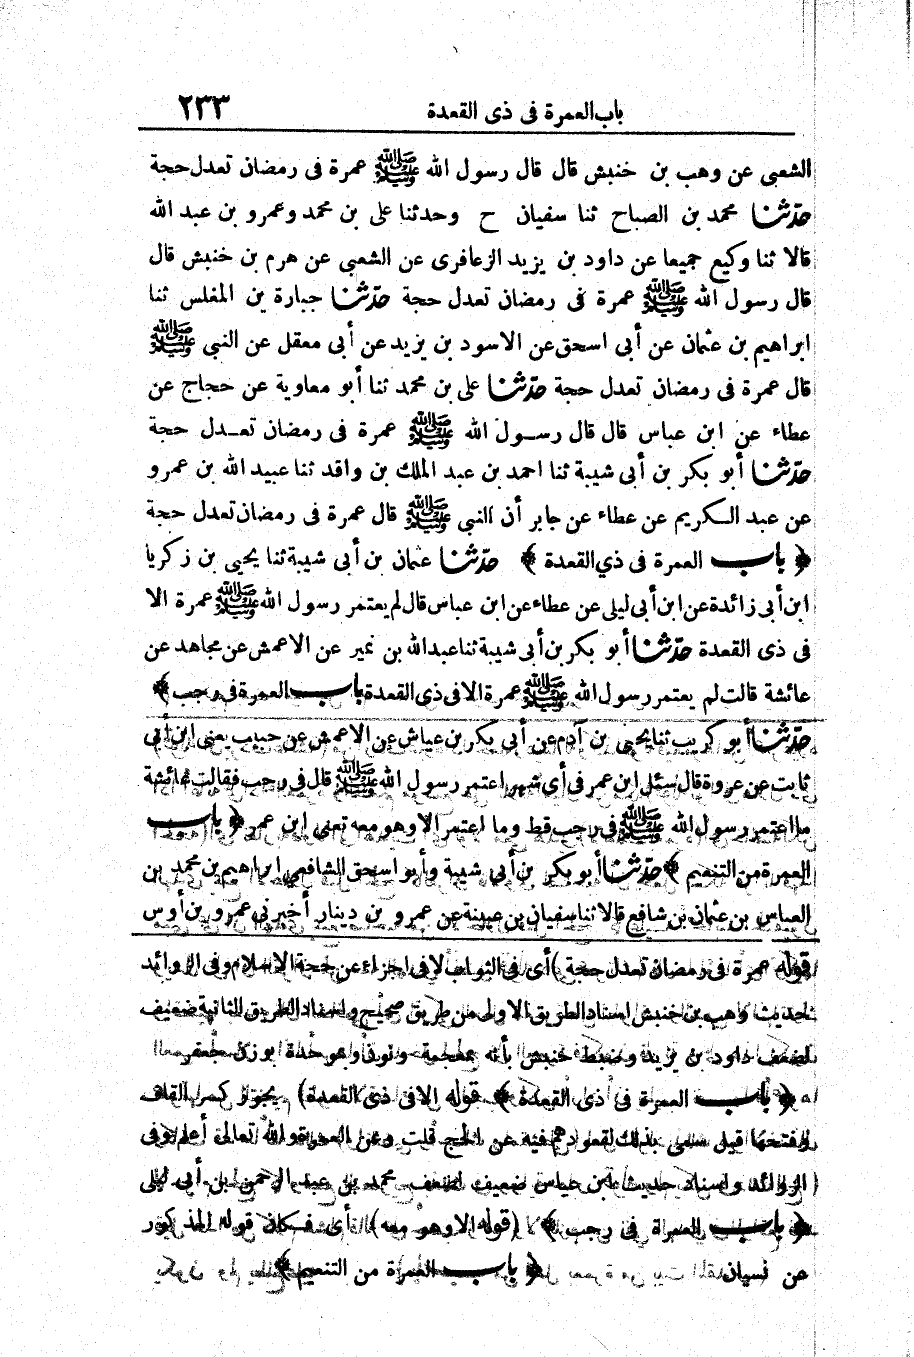 باب العمرة فى ذى القعدة ٢٣٣
الشعبى عن وهب بن خنبش قال قال رسول الله ﷺ عمرة فى رمضان تعدل حجة
حدّثنا محمد بن الصباح ثنا سفيان ح وحدثنا على بن محمد وعمرو بن عبد الله
قالا ثنا وكيع جميعا عن داود بن يزيد الزعافرى عن الشعبى عن هرم بن خنبش قال
قال رسول الله ﷺ عمرة فى رمضان تعدل حجة حدّثنا جبارة بن المغلس ثنا
ابراهيم بن عثمان عن أبى اسحق عن الاسود بن يزيد عن أبى معقل عن النبى ﷺ
قال عمرة فى رمضان تعدل حجة حدّثنا على بن محمد ثنا أبو معاوية عن حجاج عن
عطاء عن ابن عباس قال قال رسـول الله ﷺ عمرة فى رمضان تعـدل حجة
حدّثنا أبو بكر بن أبى شيبة ثنا احمد بن عبد الملك بن واقد ثنا عبيد الله بن عمرو
عن عبد الـكريم عن عطاء عن جابر أن النبى ﷺ قال عمرة فى رمضان تعدل حجة
﴿ باب العمرة فى ذي القعدة ﴾ حدّثنا عثمان بن أبى شيبة ثنا يحيى بن زكريا
ابن أبى زائدة عن ابن أبى ليلى عن عطاء عن ابن عباس قال لم يعتمر رسول الله ﷺ عمرة الا
فى ذى القعدة حدّثنا أبو بكر بن أبى شيبة ثنا عبد الله بن نمير عن الاعمش عن مجاهد عن
عائشة قالت لم يعتمر رسول الله ﷺ عمرة الا فى ذى القعدة باب العمرة فى رجب ﴾
حدّثنا أبو كريب ثنا يحيى بن آدم عن أبى بكر بن عياش عن الاعمش عن حبيب يعنى ابن أبى
ثابت عن عروة قال سئل ابن عمر فى أى شهر اعتمر رسول الله ﷺ قال فى رجب فقالت عائشة
ما اعتمر رسول الله ﷺ فى رجب قط وما اعتمر الا وهو معه تعنى ابن عمر ﴿ باب
العمرة من التنعيم ﴾ حدّثنا أبو بكر بن أبى شيبة وأبو اسحق الشافعى ابراهيم بن محمد بن
العباس بن عثمان بن شافع قالا ثنا سفيان بن عيينة عن عمرو بن دينار أخبرنى عمرو بن أوس
قوله عمرة فى رمضان تعدل حجة ) أى فى الثواب لا فى اجزاء عن حجة الاسلام وفى الزوائد
حديث وهب بن خنبش اسناد الطريق الاولى من طريق صحيح واسناد الطريق الثانية ضعيف
لضعف داود بن يزيد وضبط خنبش بأنه بمعجمة ونون وموحدة بوزن جعفر
﴿ باب العمرة فى ذى القعدة ﴾ قوله الا فى ذى القعدة ) يجوز كسر القاف
وفتحها قيل سمى بذلك لقعودهم فيه عن الحج قلت وعن العمرة والله تعالى أعلم وفى
الزوائد واسناد حديث ابن عباس ضعيف لضعف محمد بن عبد الرحمن ابن أبى ليلى
﴿ باب العمرة فى رجب ﴾ ( قوله الا وهو معه ) أى فكان قوله المذكور
عن نسيان ﴿ باب العمرة من التنعيم ﴾